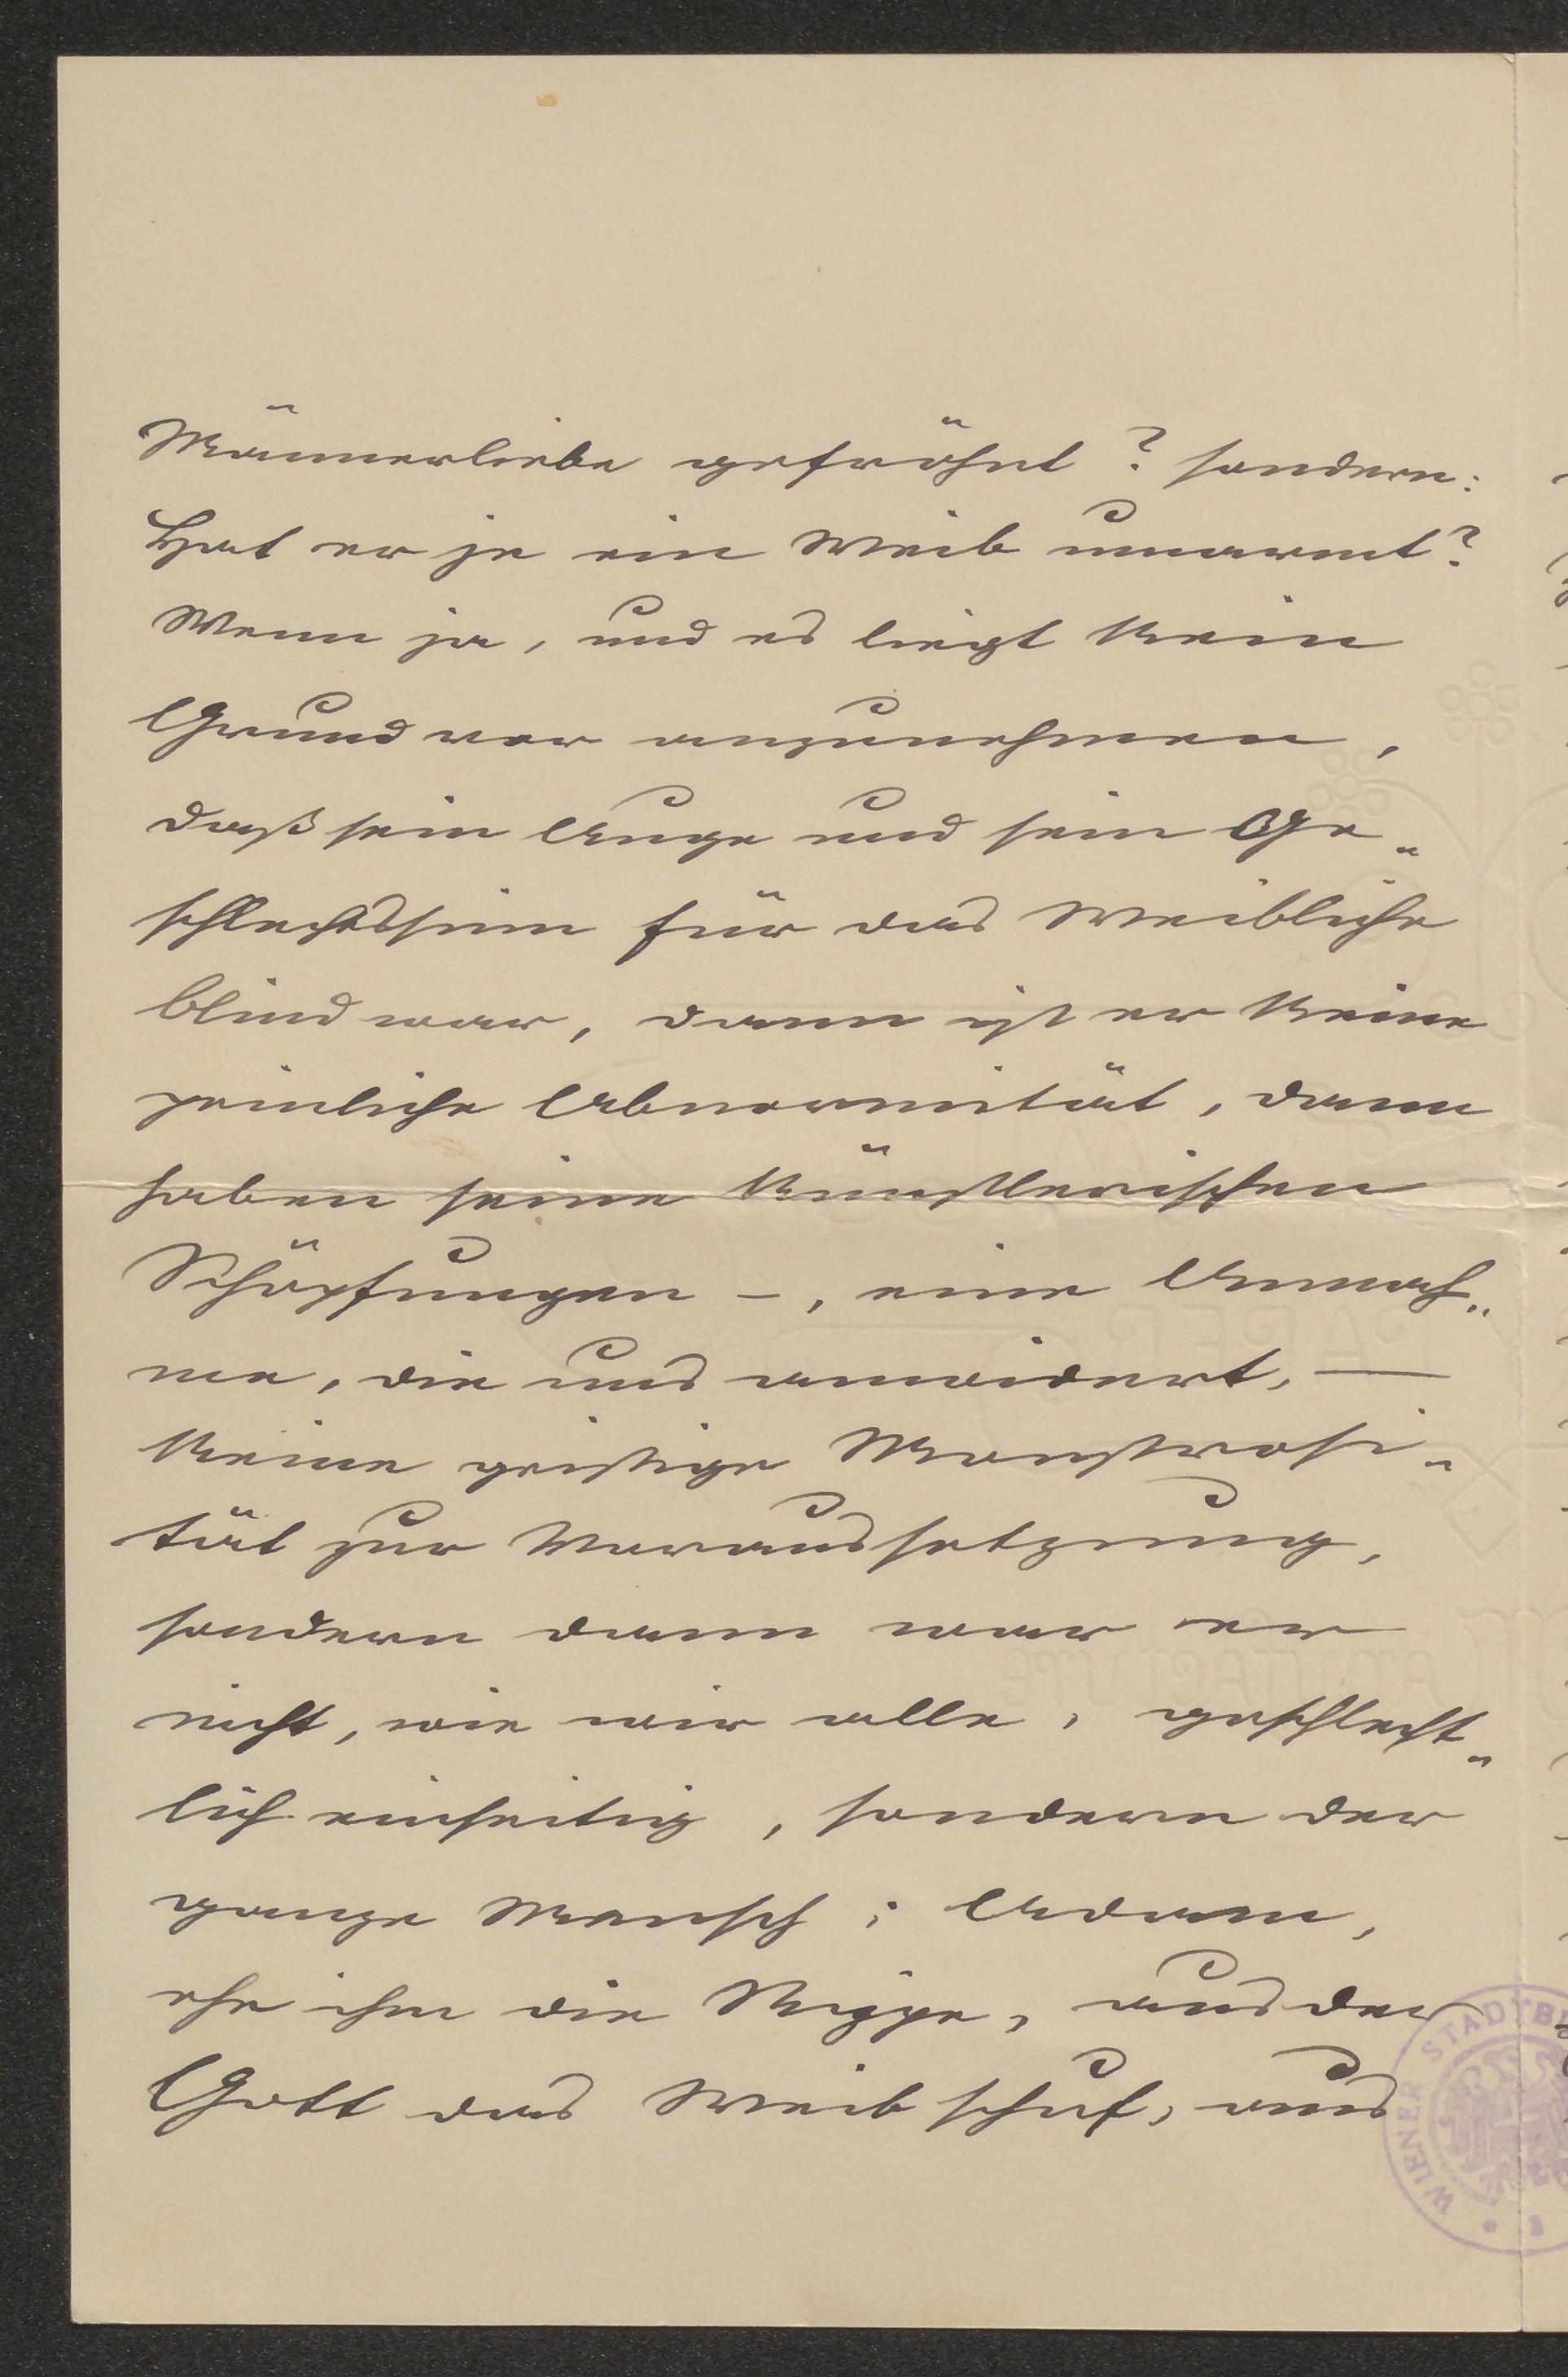 Männerliebe gefröhnt? sondern:
Hat er je ein Weib umarmt?
Wenn ja, und es liegt kein
Grund vor anzunehmen,
daß sein Auge und sein Ge„
schlechtssinn für das Weibliche
blind war, dann ist er keine
peinliche Abnormität, dann
haben seine künstlerischen
Schöpfungen –, eine Annah„
me, die uns anwidert, —
keine geistige Monstrosi„
tät zur Voraussetzung,
sondern dann war er
nicht, wie wir alle, geschlecht„
lich einseitig, sondern der
ganze Mensch; Adam,
ehe ihm die Rippe, aus der
Gott das Weib schuf, aus
WIENER STADTB